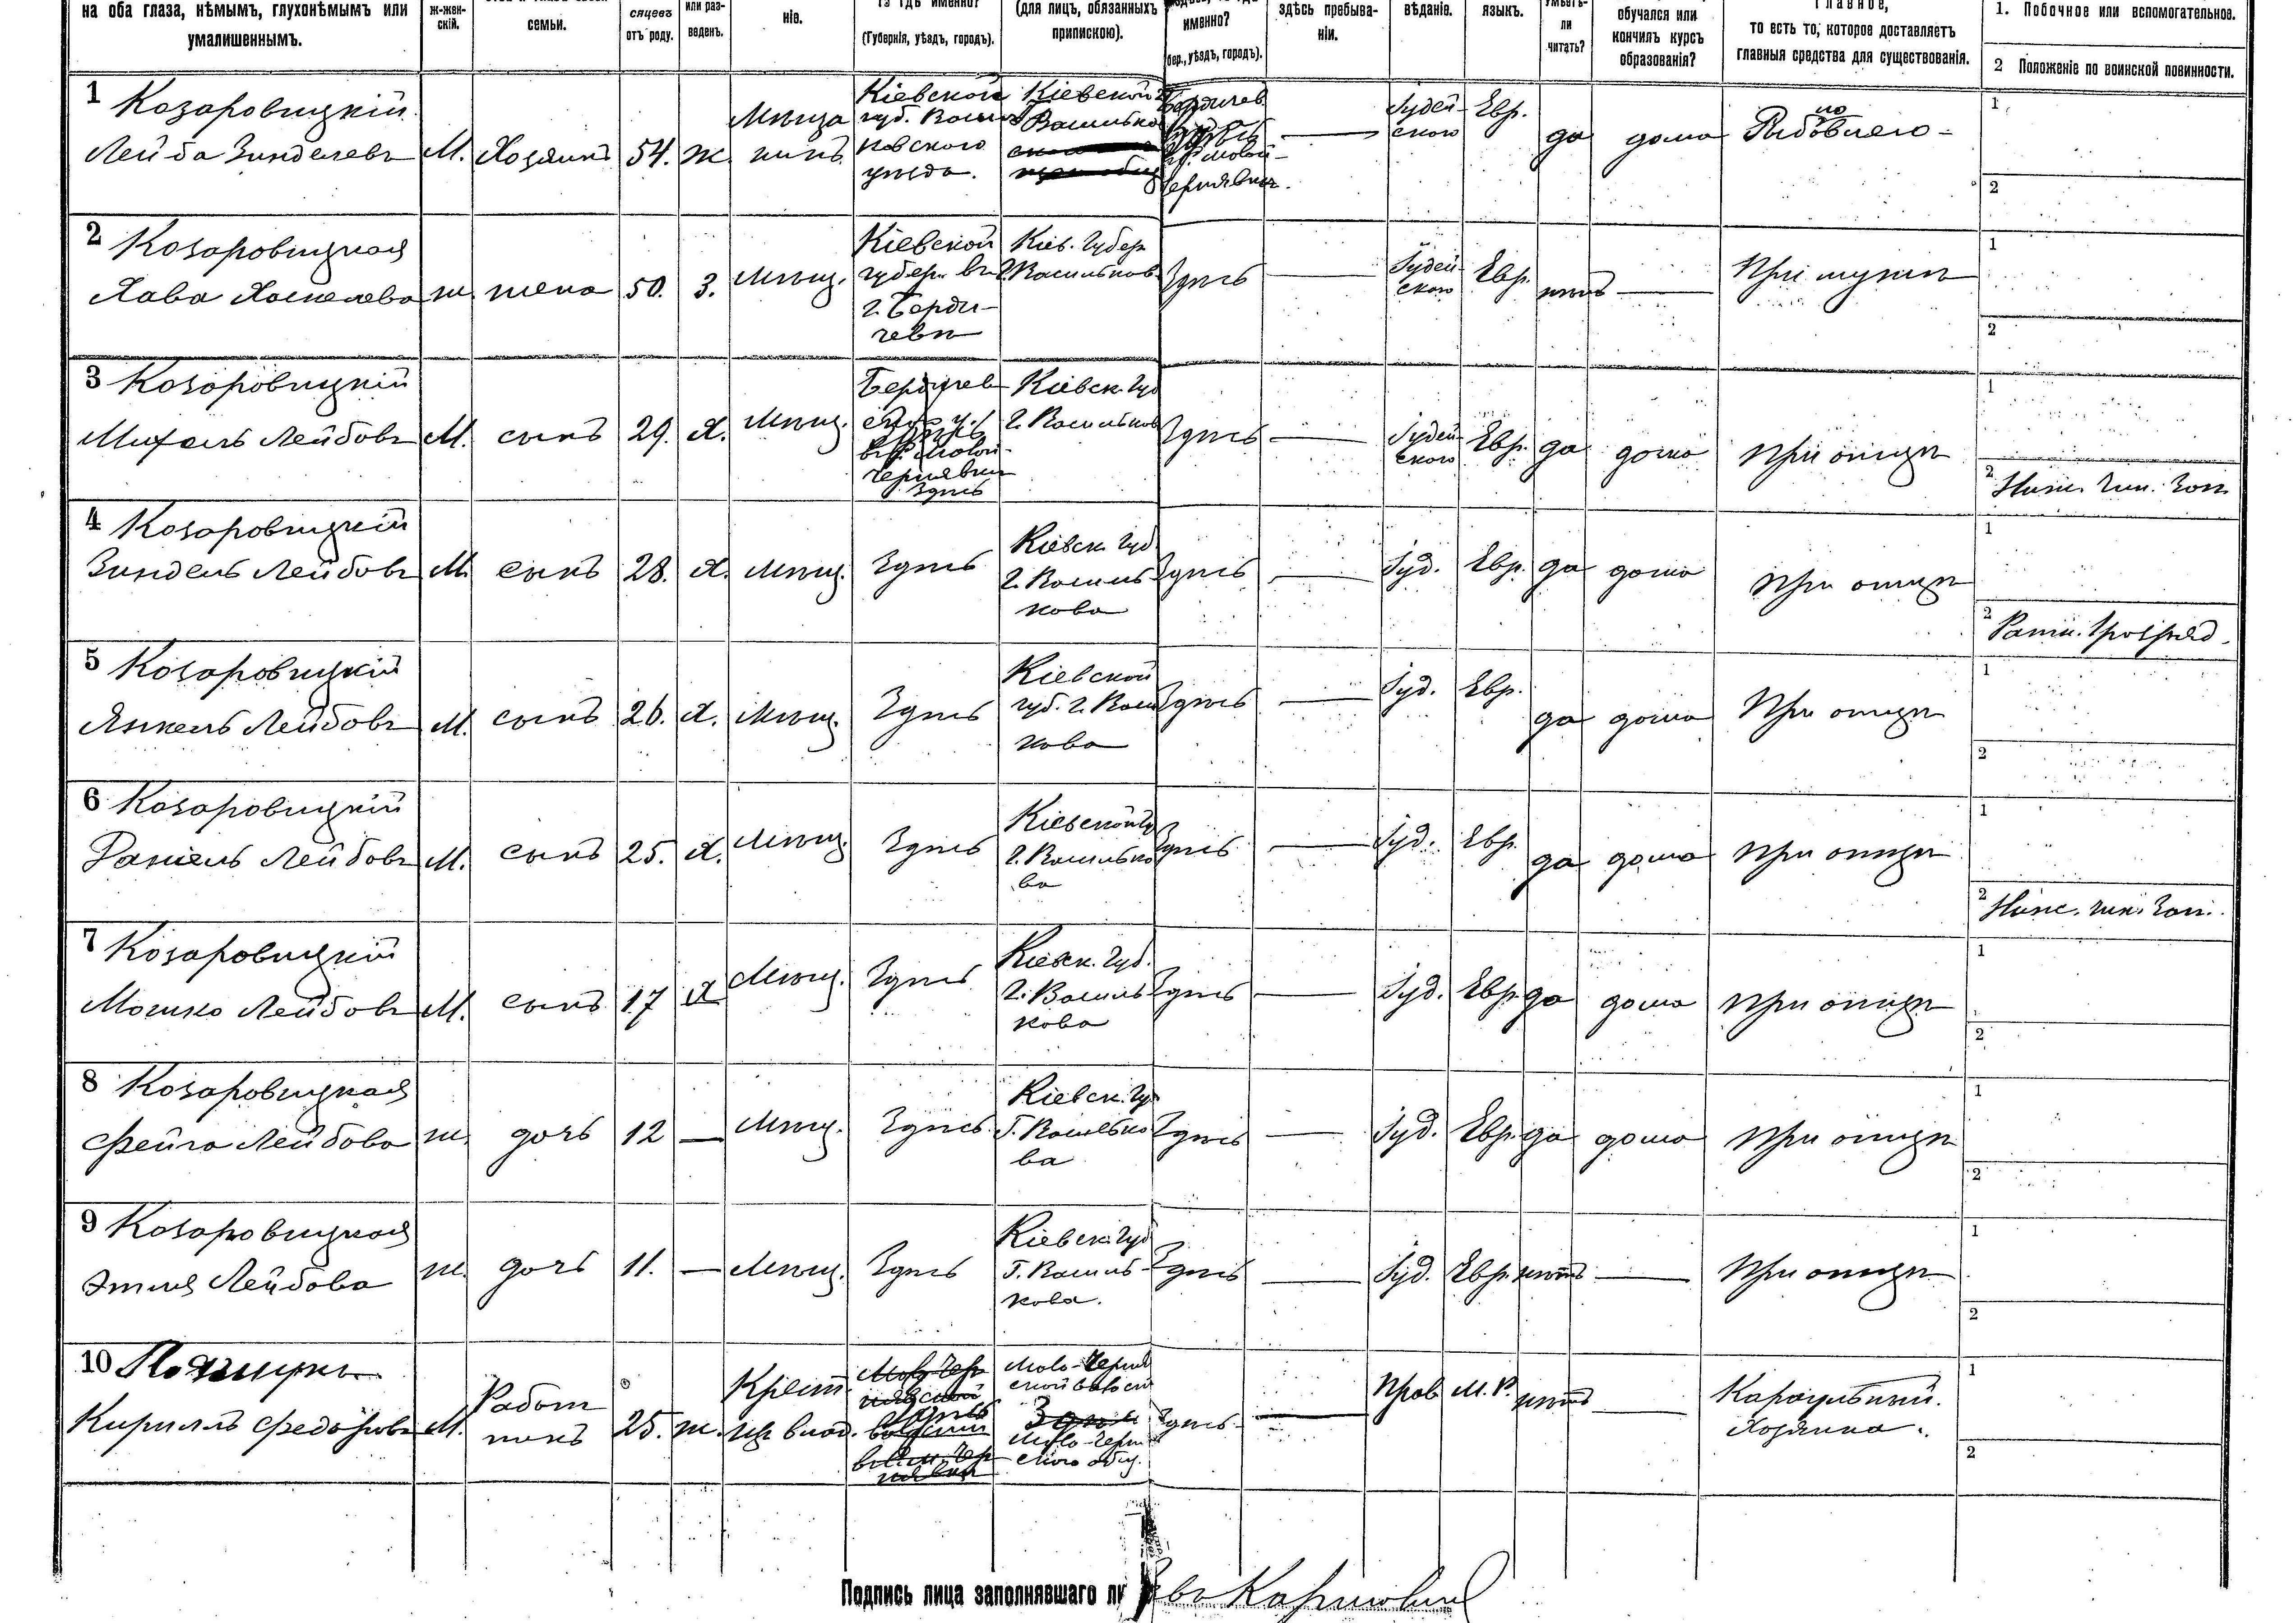 на оба глаза, нѣмымъ, глухонѣмымъ или
умалишеннымъ.
ж-жен-
скій.
семьи.
сяцевъ
отъ роду.
или раз-
веденъ.
ніе.
(Губернія, уѣздъ, городъ).
(для лицъ, обязанныхъ
припискою).
именно?
уѣздъ, городъ).
здѣсь пребыва-
ніи.
вѣданіе.
языкъ.
ли
читать?
обучался или
кончилъ курсъ
образованія?
главное,
то есть то, которое доставляетъ
главныя средства для существованія.
1. Побочное или вспомогательное.
2 Положеніе по воинской повинности.
1 Козаровицкій
Лейба Зинделевъ М. Хозяинъ 54. Ж
Мѣща
нинъ
Кіевской
губ. Василь
ковскаго
уѣзда.
Кіевской
Василько
Бердичев
Чернявка.
— Іудей
ского Евр. да дома
1
2
2 Козаровицкая
Хава Хаскелева ж жена 50. З. Мѣщ.
Кіевской
губер. въ
г. Берди-
чевѣ
Кіев. Губер
г. Васильков
Здѣсь — Іудей
ского Евр. нѣтъ — При мужѣ
1
2
3 Козаровицкій
Лейбовъ М. сынъ 29. Х. Мѣщ.
Бердичев
Чернявки
Здѣсь
Кіевск. Губ
г. Васильков
Здѣсь — Іудей
ского Евр. да дома При отцѣ
1
2 Нижн. Чин. Зап.
4 Козаровицкій
Зиндель Лейбовъ М. сынъ 28. Х. Мѣщ. Здѣсь
Кіевск. Губ
г. Василь
кова
Здѣсь — Іуд. Евр. да дома При отцѣ
1
2 Ратн.
5 Козаровицкій
Янкель Лейбовъ М. сынъ 26. Х. Мѣщ. Здѣсь
Кіевской
губ. г. Васи
кова
Здѣсь — Іуд. Евр. да дома При отцѣ
1
2
6 Козаровицкій
Даніель Лейбовъ М. сынъ 25. Х. Мѣщ. Здѣсь
Кіевской Гу
г. Василько
ва
Здѣсь — Іуд. Евр. да дома При отцѣ
1
2 Нижн. чин. Зап.
7 Козаровицкій
Мошко Лейбовъ М. сынъ 17 Х Мѣщ. Здѣсь
Кіевск. Губ.
г. Василь
кова
Здѣсь — Іуд. Евр. да дома При отцѣ
1
2
8 Козаровицкая
Фейга Лейбова ж. дочь 12 — Мѣщ. Здѣсь
Кіевск. Гу
Г. Василько
ва
Здѣсь — Іуд. Евр. да дома При отцѣ
1
2
9 Козаровицкая
Этля Лейбова ж. дочь 11. — Мѣщ. Здѣсь
Кіевск. Губ
Г. Василь
кова.
Здѣсь — Іуд. Евр. нѣтъ — При отцѣ
1
2
10
Кириллъ Федоровъ М.
Работ
никъ 25. ж.
Крест.
Здѣсь — Прав М. Р. нѣтъ —
Караульный.
Хозяина.
1
2
Подпись лица заполнявшаго